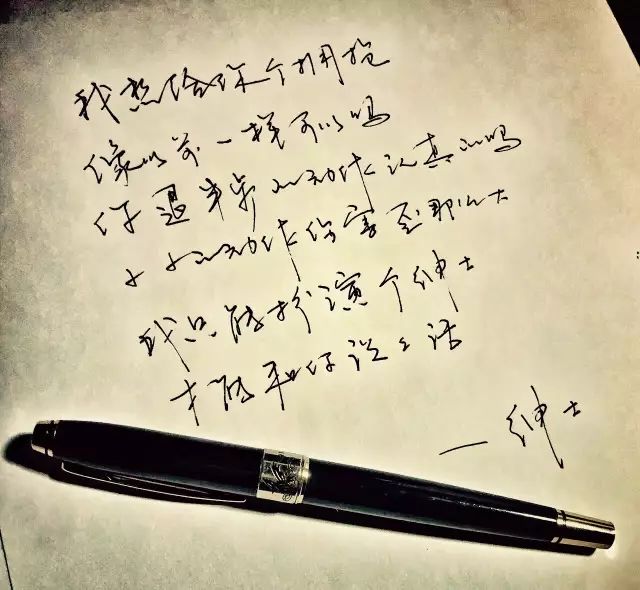 我想给你个拥抱
像以前一样可以吗
你退半步的动作认真的吗
小小的动作伤害还那么大
我只能扮演个绅士
才能和你说说话
— 绅士